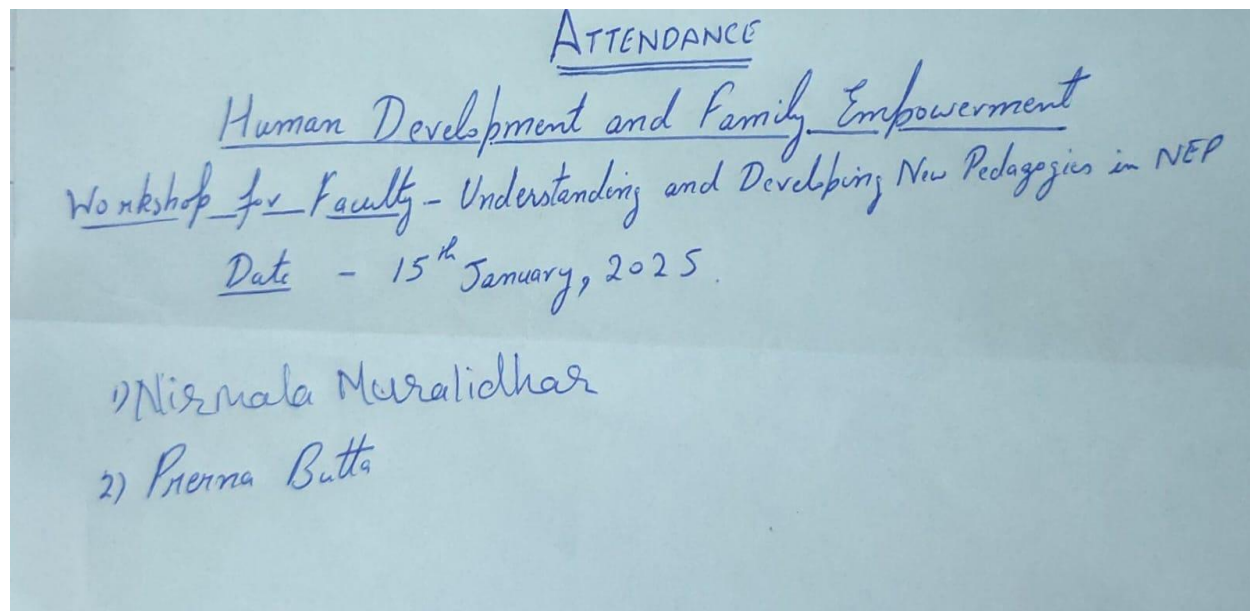 ATTENDANCE
Human Development and Family Empowerment
Workshop for Faculty - Understanding and Developing New Pedagogies in NEP
Date - 15th January, 2025.
1) Nirmala Muralidhar
2) Prerna Butta